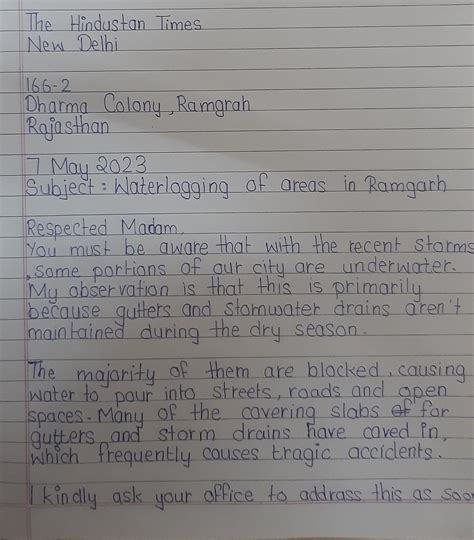 The Hindustan Times
New Delhi
166-2
Dharma Colony, Ramgrah
Rajasthan
7 May 2023
Subject : Waterlogging of areas in Ramgarh
Respected Madam,
You must be aware that with the recent storms
, some portions of our city are underwater.
My observation is that this is primarily
because gutters and stormwater drains aren't
maintained during the dry season.
The majority of them are blocked, causing
water to pour into streets, roads and open
spaces. Many of the covering slabs of for
gutters and storm drains have caved in,
which frequently causes tragic accidents.
I kindly ask your office to addrass this as soon